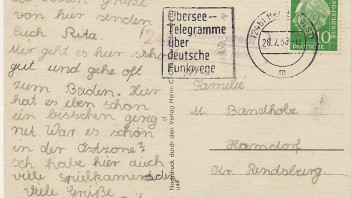 von hier senden
Euch Rita.
Mir geht es hier sehr
gut und gehe oft
zum Baden. Hier
hat es eben schon
ein bisschen gereg-
net War es schön
in der Ostzone?
Ich habe hier auch
viele spielkameraden
Viele Grüße
Übersee-
Telegramme
über
deutsche
Funkwege
28.7.
m
DEUTSCHE
BUNDESPOST
10
Familie
M. Bandholz
Hamdorf
Kr. Rendsburg.
Nachdruck durch den Verlag Heinr.